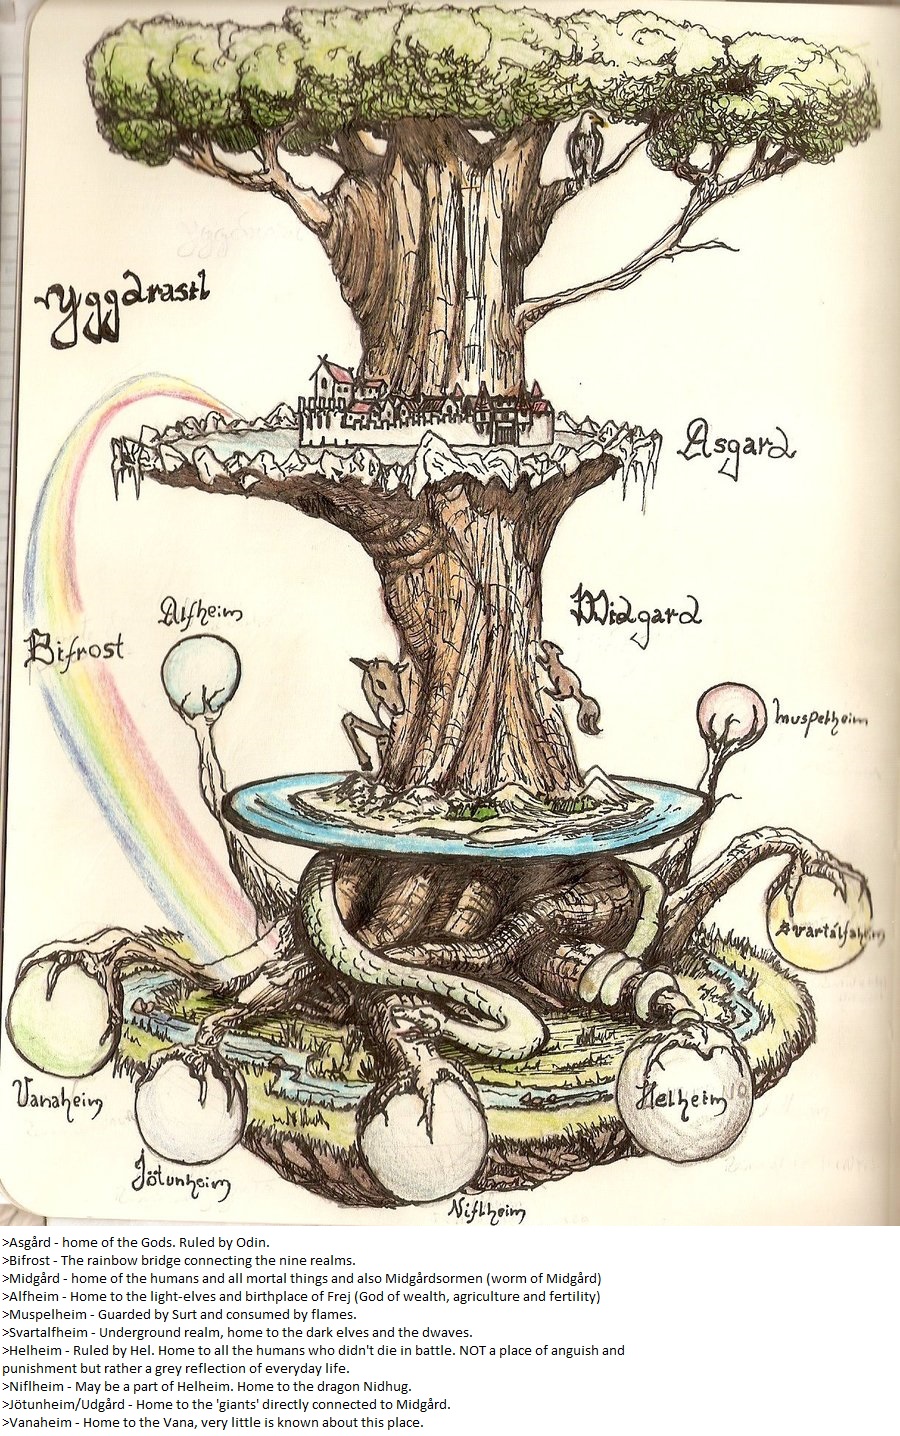 Yggdrasil
Asgard
Midgard
Alfheim
Bifrost
Muspelheim
Svartálfaheim
Vanaheim
Helheim
Jötunheim
Niflheim
>Asgård - home of the Gods. Ruled by Odin.
>Bifrost - The rainbow bridge connecting the nine realms.
>Midgård - home of the humans and all mortal things and also Midgårdsormen (worm of Midgård)
>Alfheim - Home to the light-elves and birthplace of Frej (God of wealth, agriculture and fertility)
>Muspelheim - Guarded by Surt and consumed by flames.
>Svartalfheim - Underground realm, home to the dark elves and the dwaves.
>Helheim - Ruled by Hel. Home to all the humans who didn't die in battle. NOT a place of anguish and
punishment but rather a grey reflection of everyday life.
>Niflheim - May be a part of Helheim. Home to the dragon Nidhug.
>Jötunheim/Udgård - Home to the 'giants' directly connected to Midgård.
>Vanaheim - Home to the Vana, very little is known about this place.